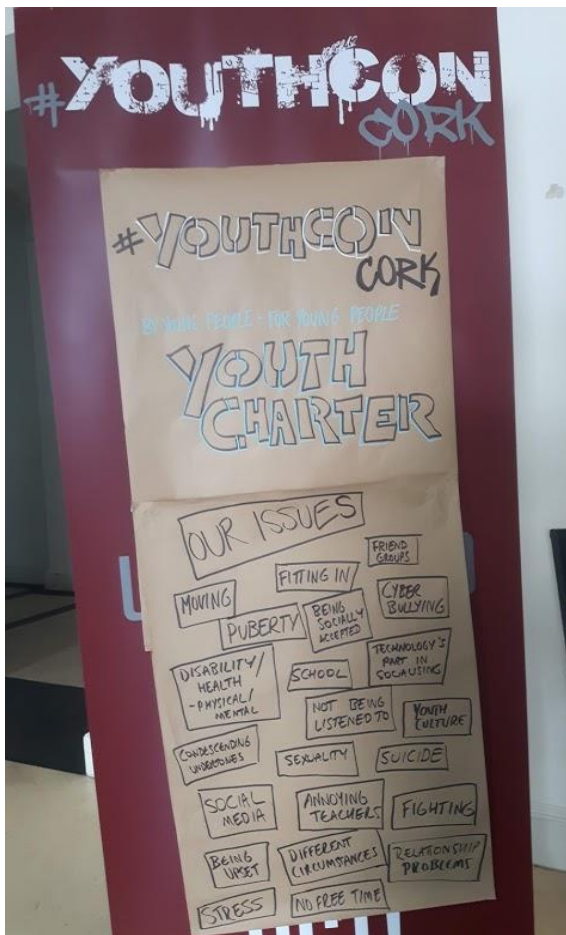 #YOUTHCON
CORK
#YOUTHCON
CORK
BY YOUNG PEOPLE - FOR YOUNG PEOPLE
YOUTH
CHARTER
OUR ISSUES
FRIEND
GROUPS
FITTING IN
MOVING
CYBER
BULLYING
PUBERTY
BEING
SOCIALLY
ACCEPTED
DISABILITY/
HEALTH
- PHYSICAL/
MENTAL
SCHOOL
TECHNOLOGY'S
PART IN
SOCIALISING
NOT BEING
LISTENED TO
YOUTH
CULTURE
CONDESCENDING
UNDERTONES
SEXUALITY
SUICIDE
SOCIAL
MEDIA
ANNOYING
TEACHERS
FIGHTING
BEING
UPSET
DIFFERENT
CIRCUMSTANCES
RELATIONSHIP
PROBLEMS
STRESS
NO FREE TIME